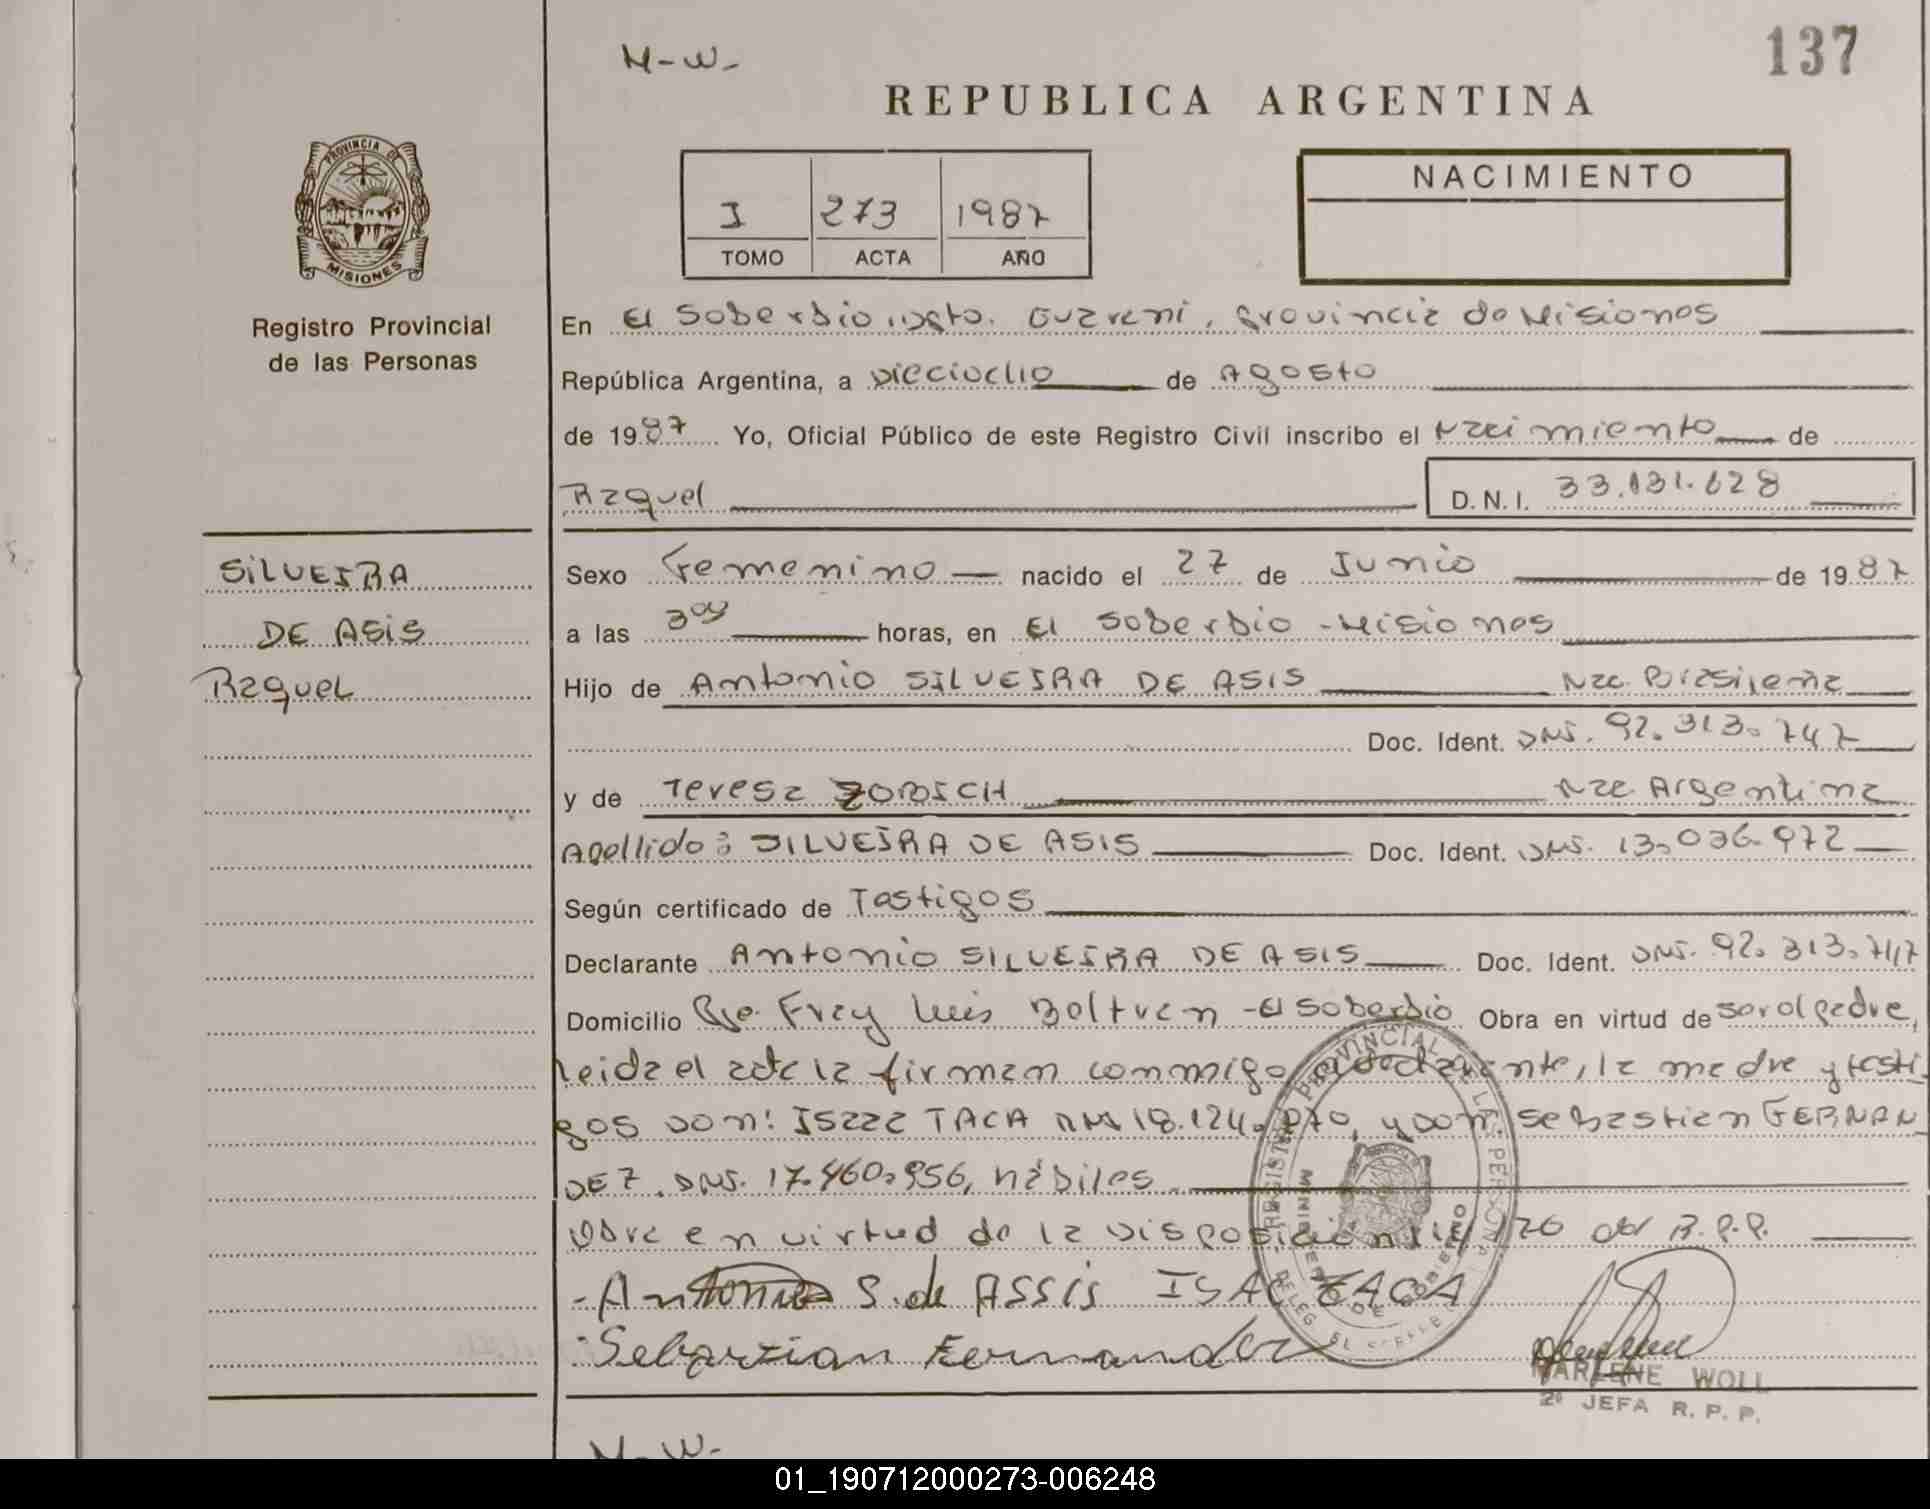 M-W-
137
REPUBLICA ARGENTINA
PROVINCIA DE
MISIONES
Registro Provincial
de las Personas
I 273 1987
TOMO ACTA AÑO
NACIMIENTO
En El Soberbio, Dpto. Guarani, Provincia de Misiones
República Argentina, a Dieciocho de Agosto
de 1987 Yo, Oficial Público de este Registro Civil inscribo el Nacimiento de
Raquel D.N.I. 33.131.128
SILVEIRA
DE ASIS
Raquel
Sexo Femenino nacido el 27 de Junio de 1987
a las 3 horas, en El Soberbio - Misiones
Hijo de Antonio SILVEIRA DE ASIS Nac. Brasilena
Doc. Ident. DNI. 92.313.747
y de Teresa ZOROSCH Nac. Argentina
Apellido: SILVEIRA DE ASIS Doc. Ident. DNI. 13.036.972
Según certificado de Testigos
Declarante Antonio SILVEIRA DE ASIS Doc. Ident. DNI. 92.313.747
Domicilio Fray Luis Beltran - El Soberbio Obra en virtud de ser el padre,
Leida el acta la firman conmigo, el declarante, la madre y testi
gos Don: Isaac TACA DNI 18.124. y Don: Sebastian FERNAN
DEZ. DNI. 17.460.956, hábiles
Obra en virtud de la Disposición 170 del R.P.P.
- Antonio S. de ASSIS ISAC TACA
Sebastian Fernandez
REGISTRO PROVINCIAL DE LAS PERSONAS
MINISTERIO DE GOBIERNO
DELEG. EL SOBERBIO
MARLENE WOLL
2º JEFA R.P.P.
M-W-
01_190712000273-006248